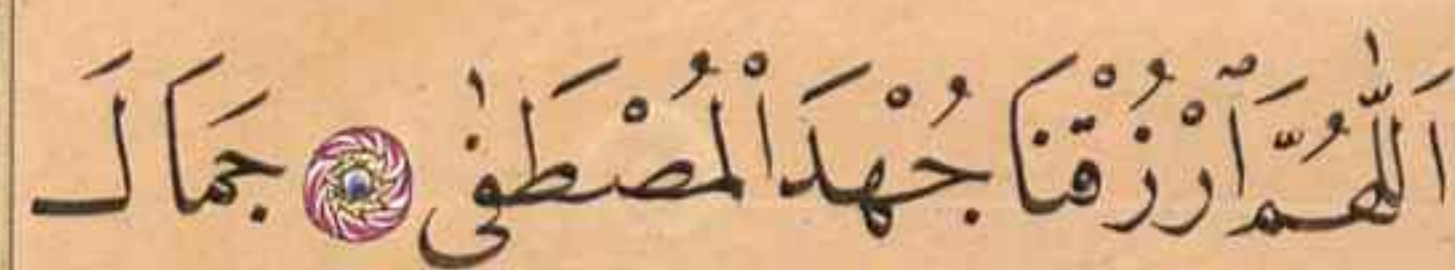 اَللّٰهُمَّ ٱرْزُقْنَا جُهْدَ الْمُصْطَفٰى جَمَالَ